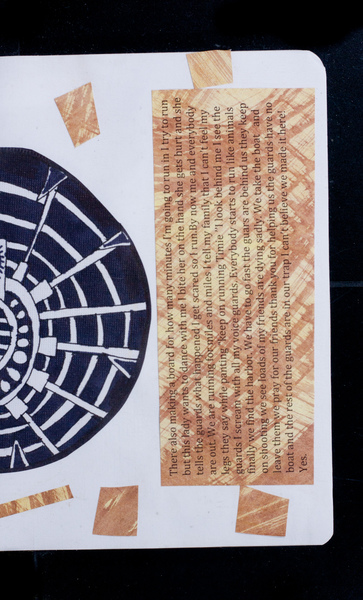 There also making a board for how many minutes I'm going to run in I try to run
but this lady wants to dance with me I bite her on the hand she gets hurt and she
tells the guards what happened I get scared so I run By now me and everybody
are out. We are running for miles and miles I tell my family that I can't feel my
legs they say while panting "keep on running Timie "I look behind me I see the
guards I scream with all my voice guards Everybody starts to run like animals
finally we find the harbor. We have to go fast the guars are behind us they keep
on shooting we see loads of my friends are dying sadly. We take the boat and
leave then we pray for our friends thank you for helping us the guards have no
boat and the rest of the guards are in our trap I can't believe we made it there!
Yes.